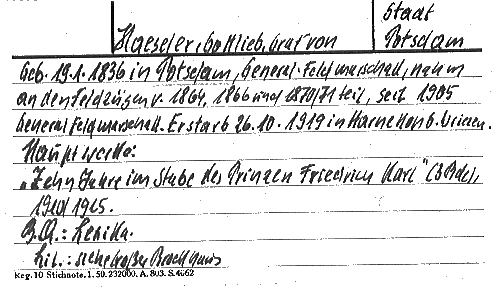 Stadt
Haeseler, Gottlieb, Graf von
Potsdam
Geb. 19.1.1836 in Potsdam, General-Feldmarschall, nahm
an den Feldzügen v. 1864, 1866 und 1870/71 teil, seit 1905
Generalfeldmarschall. Er starb 26.10.1919 in Harnekop b. Wriezen.
Hauptwerke:
„Zehn Jahre im Stabe des Prinzen Friedrich Karl" (3 Bde),
1910/1915.
B.Q.: Lexika.
Lit.: siehe Großer Brockhaus
Reg. 10 Stichnote. 1. 50. 232000. A. 803. S. 4662